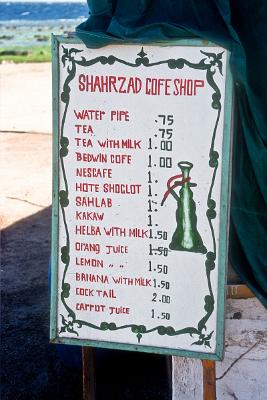 SHAHRZAD COFE SHOP
WATER PIPE .75
TEA .75
TEA WITH MILK 1.00
BEDWIN COFE 1.00
NESCAFE 1.
HOTE SHOCLOT 1.
SAHLAB 1.
KAKAW 1.
HELBA WITH MILK 1.50
ORANG JUICE 1.50
LEMON " " 1.50
BANANA WITH MILK 1.50
COCKTAIL 2.00
CARROT JUICE 1.50